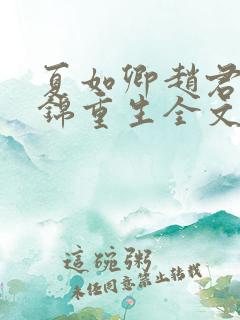 夏如卿趙君
錦重生全文
這碗粥
未經同意禁止轉載